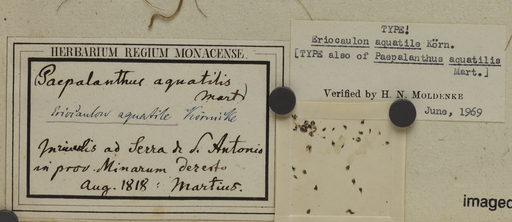 HERBARIUM REGIUM MONACENSE.
Paepalanthus aquatilis
Mart
Eriocaulon aquatile Körnicke
In rivulis ad Serra de S. Antonio
in prov. Minarum deserto
Aug. 1818: Martius.
TYPE!
Eriocaulon aquatile Körn.
[TYPE also of Paepalanthus aquatilis
Mart.]
Verified by H. N. MOLDENKE
June, 1969
imaged